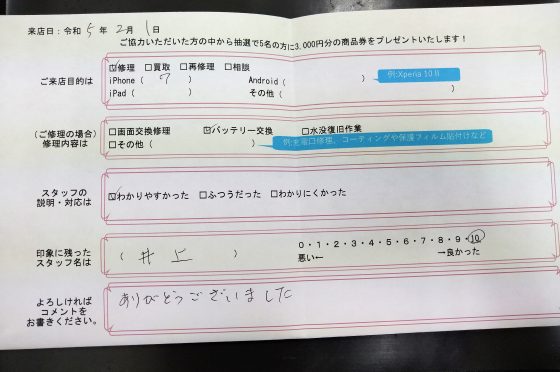 来店日：令和 5 年 2 月 1 日
ご協力いただいた方の中から抽選で5名の方に3,000円分の商品券をプレゼントいたします！
ご来店目的は
☑修理 □買取 □再修理 □相談
iPhone（ 7 ） Android（ ）
例:Xperia 10Ⅱ
iPad（ ） その他（ ）
（ご修理の場合）
修理内容は
□画面交換修理 ☑バッテリー交換 □水没復旧作業
□その他（ ）
例:充電口修理、コーティングや保護フィルム貼付けなど
スタッフの
説明・対応は
☑わかりやすかった □ふつうだった □わかりにくかった
印象に残った
スタッフ名は
（ 井上 ）
0・1・2・3・4・5・6・7・8・9・10
悪い← →良かった
よろしければ
コメントを
お書きください。
ありがとうございました